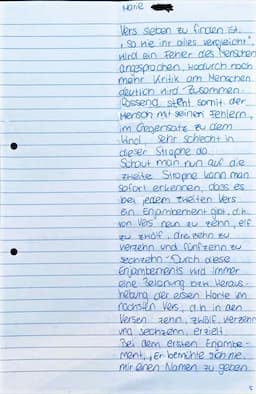 Marie
Vers sieben zu finden ist,
"so wie ihr alles vergleicht",
wird ein Fehler des Menschen
angesprochen, wodurch noch
mehr Kritik am Menschen
deutlich wird. Zusammen-
fassend steht somit der
Mensch mit seinen Fehlern,
im Gegensatz zu dem
Wind, sehr schlecht in
dieser Strophe da.
Schaut man nun auf die
zweite Strophe kann man
sofort erkennen, dass es
bei jedem zweiten Vers
ein Enjambement gibt, d.h.
von Vers neun zu zehn, elf
zu zwölf, dreizehn zu
vierzehn und fünfzehn zu
sechzehn. Durch diese
Enjambements wird immer
eine Betonung bzw. Heraus-
hebung der ersten Worte im
nächsten Vers, d.h. in den
Versen zehn, zwölf, vierzehn
und sechzehn, erzielt.
Bei dem ersten Enjambe-
ment, "Er bemühte sich nie,
mir einen Namen zu geben